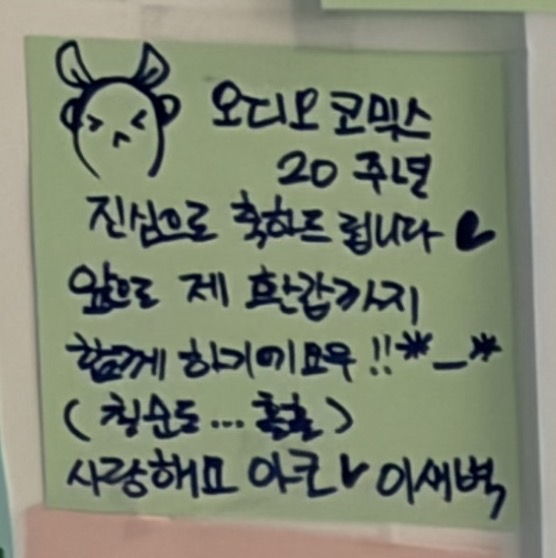 오디오코믹스
20주년
진심으로 축하드립니다♥
앞으로 제 환갑까지
함께 하기에요우!!*_*
(칠순도...흠흠)
사랑해요 아큰♥ 이새벽